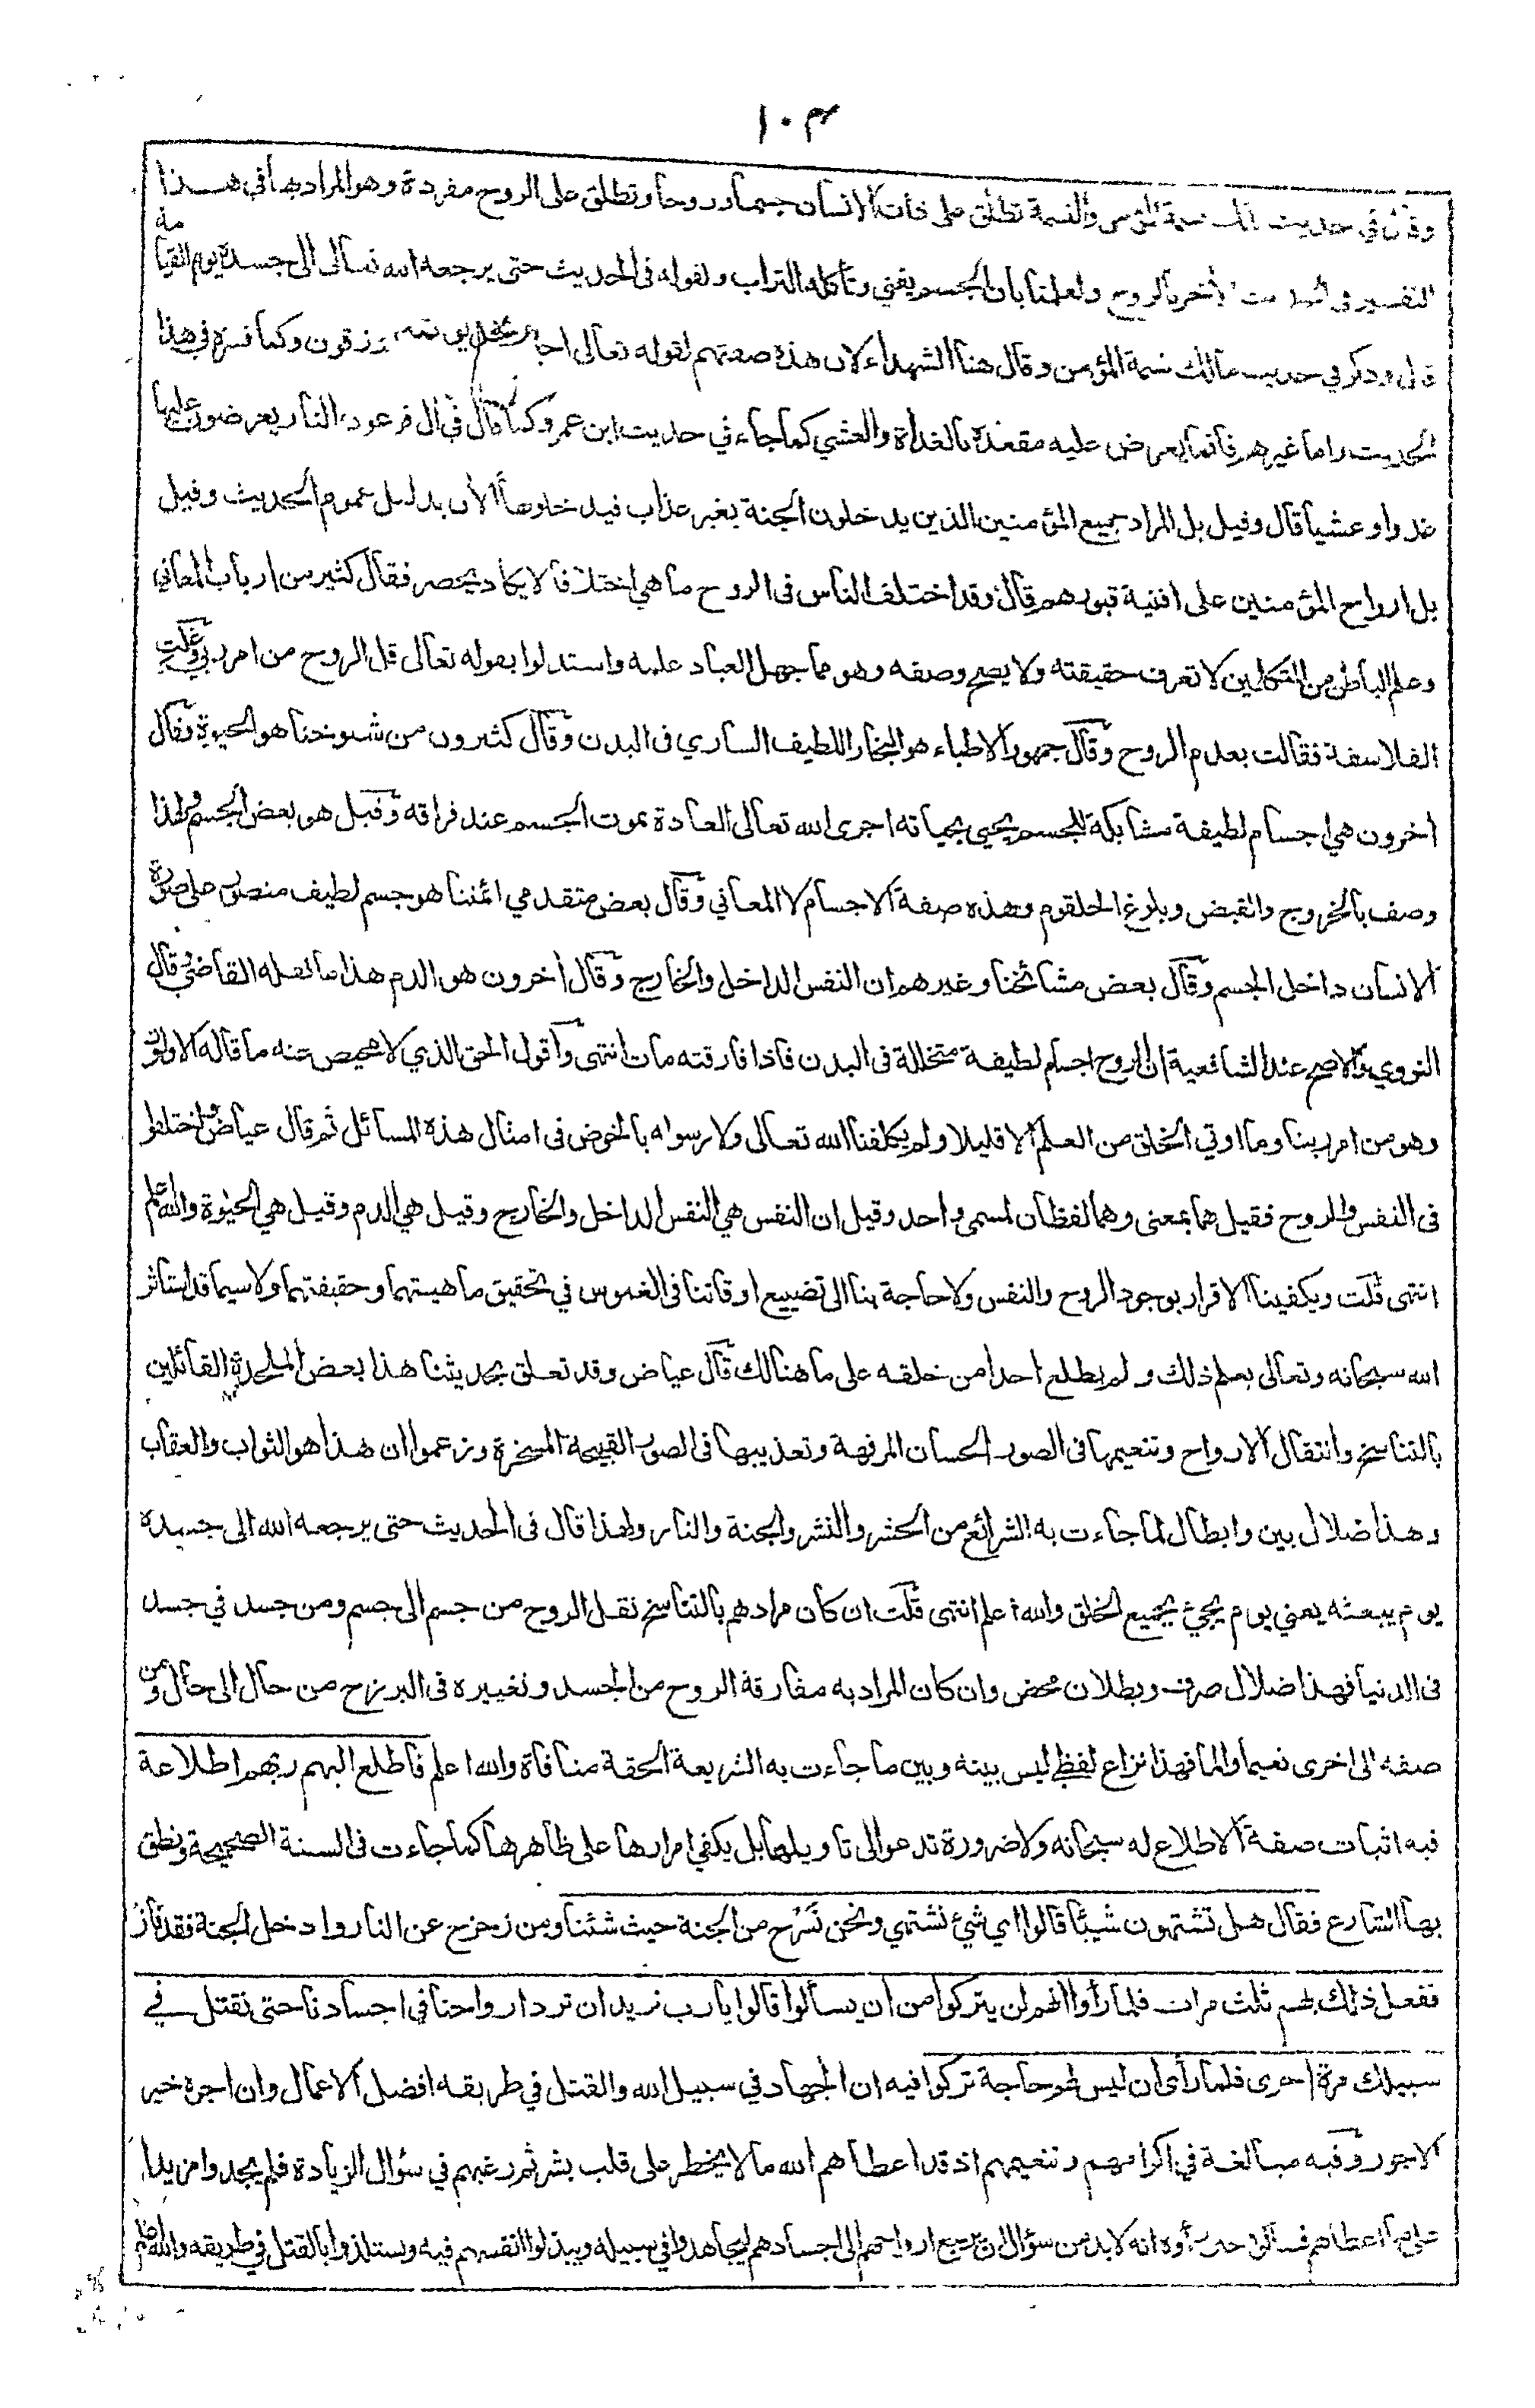 ١٠٣
وقال في حديث مالك نسمة المؤمن والنسمة تطلق على ذات الانسان جسما وروحا وتطلق على الروح مفردة وهو المراد بها في هذا
التفسير في الحديث الأخر بالروح ولعلمنا بان الجسم يفنى وتأكله التراب ولقوله فى الحديث حتى يرجعه الله تعالى الى جسده يوم القيامة
قال وذكر في حديث مالك نسمة المؤمن وقال هنا الشهداء لان هذه صفتهم لقوله تعالى احياء عند ربهم يرزقون وكما فسره في هذا
الحديث واما غيرهم فانما يعرض عليه مقعده بالغداة والعشي كما جاء في حديث ابن عمر وكما قال في ال فرعون النار يعرضون عليها
غدوا وعشيا قال وقيل بل المراد جميع المؤمنين الذين يدخلون الجنة بغير عذاب فيدخلونها الأن بدليل عموم الحديث وقيل
بل ارواح المؤمنين على افنية قبورهم قال وقد اختلف الناس فى الروح ما هي اختلافا لا يكاد يحصر فقال كثير من ارباب المعاني
وعلم الباطن من المتكلمين لا تعرف حقيقته ولا يصح وصفه وهو مما جهل العباد علمه واستدلوا بقوله تعالى قل الروح من امر ربي وغلت
الفلاسفة فقالت بعدم الروح وقال جمهور الاطباء هو البخار اللطيف الساري فى البدن وقال كثيرون من شيوخنا هو الحيوة وقال
اخرون هي اجسام لطيفة مشابكة للجسم يحيى بحياته اجرى الله تعالى العادة بموت الجسم عند فراقه وقيل هو بعض الجسم ولهذا
وصف بالخروج والقبض وبلوغ الحلقوم وهذه صفة الاجسام لا المعاني وقال بعض متقدمي ائمتنا هو جسم لطيف متصور على صورة
الانسان داخل الجسم وقال بعض مشائخنا وغيرهم ان النفس الداخل والخارج وقال اخرون هو الدم هذا ما نقله القاضي وقال
النووي والاصح عند الشافعية ان الروح اجسام لطيفة متخللة فى البدن فاذا فارقته مات انتهى واقول الحق الذي لا محيص عنه ما قاله الاولون
وهو من امر ربنا وما اوتي الخلق من العلم الا قليلا ولم يكلفنا الله تعالى ولا رسوله بالخوض فى امثال هذه المسائل ثم قال عياض واختلفوا
فى النفس والروح فقيل هما بمعنى وهما لفظان لمسمى واحد وقيل ان النفس هي النفس الداخل والخارج وقيل هي الدم وقيل هي الحيوة والله اعلم
انتهى قلت ويكفينا الاقرار بوجود الروح والنفس ولا حاجة بنا الى تضييع اوقاتنا فى الغموس في تحقيق ماهيتهما وحقيقتهما ولا سيما قد استأثر
الله سبحانه وتعالى بعلم ذلك ولم يطلع احدا من خلقه على ما هنالك قال عياض وقد تعلق بحديثنا هذا بعض الملحدة القائلين
بالتناسخ وانتقال الارواح وتنعيمها فى الصور الحسان المرفهة وتعذيبها فى الصور القبيحة المسخرة وزعموا ان هذا هو الثواب والعقاب
وهذا ضلال بين وابطال لما جاءت به الشرائع من الحشر والنشر والجنة والنار ولهذا قال فى الحديث حتى يرجعه الله الى جسده
يوم يبعثه يعني يوم يجئ بجميع الخلق والله اعلم انتهى قلت ان كان مرادهم بالتناسخ نقل الروح من جسم الى جسم ومن جسد في جسد
فى الدنيا فهذا ضلال صرف وبطلان محض وان كان المراد به مفارقة الروح من الجسد وتغييره فى البرزخ من حال الى حال ومن
صفه الى اخرى نعيما والما فهذا نزاع لفظي ليس بينه وبين ما جاءت به الشريعة الحقة منافاة والله اعلم فاطلع اليهم ربهم اطلاعة
فيه اثبات صفة الاطلاع له سبحانه ولا ضرورة تدعو الى تأويلها بل يكفي امرارها على ظاهرها كما جاءت فى السنة الصحيحة ونطق
بها الشارع فقال هل تشتهون شيئا قالوا اي شئ نشتهي ونحن نسرح من الجنة حيث شئنا ومن زحزح عن النار وادخل الجنة فقد فاز
ففعل ذلك بهم ثلث مرات فلما رأوا انهم لن يتركوا من ان يسألوا قالوا يا رب نريد ان ترد ارواحنا في اجسادنا حتى نقتل في
سبيلك مرة اخرى فلما رأى ان ليس لهم حاجة تركوا فيه ان الجهاد في سبيل الله والقتل في طريقه افضل الاعمال وان اجره خير
الاجور وفيه مبالغة في اكرامهم وتنعيمهم اذ قد اعطاهم الله ما لا يخطر على قلب بشر ثم رغبهم في سؤال الزيادة فلم يجدوا مزيدا
على ما اعطاهم فسألوا حين رأوه انه لا بد من سؤال ان يرجع ارواحهم الى اجسادهم ليجاهدوا في سبيله ويبذلوا انفسهم فيه ويستلذوا بالقتل في طريقه والله اعلم